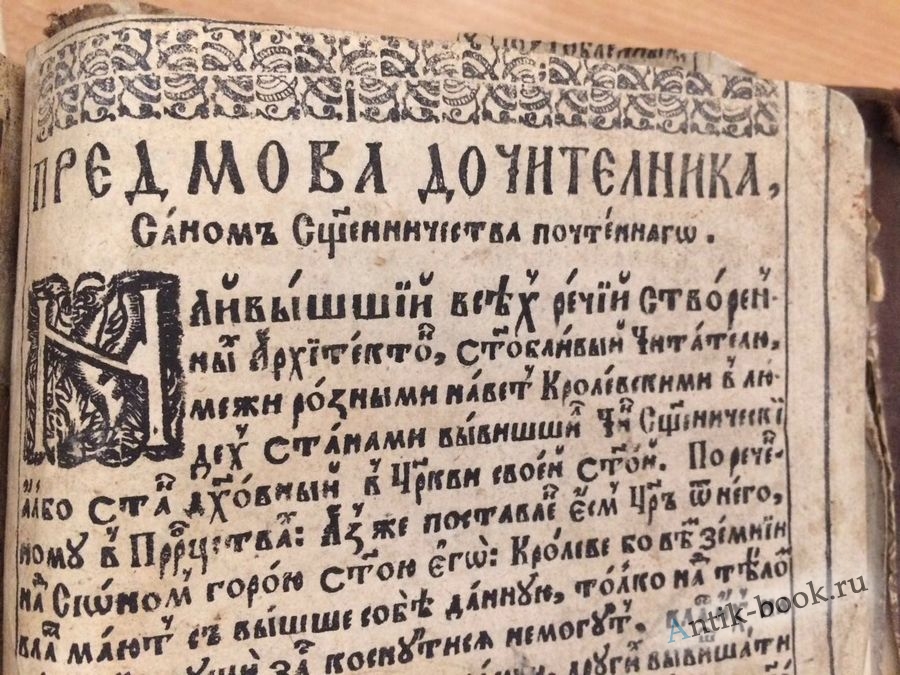 ПРЕДМОВА ДОЧИТЕЛНИКА,
Са́номъ Сщ҃е́нничества почте́ннагѡ.
НАйвы́шшїй всѣ́хъ ре́чїй створе́н-
ны́й А҆рхїте́ктоⷬ, ст҃обли́вый Чита́телю,
межи ро́зными наве́тъ Кроле́вскими в лю-
дехъ ста́нами вы́вишшиⷧ чиⷩ Сщ҃е́нническї
а́лбо стаⷩ дх҃о́вный в Цр҃кви свое́й ст҃о́й. По рече́-
ному в Прⷪ҇рцтваⷯ: А҆́зъ же поста́влеⷩ є҆́смъ Цр҃ъ ѿ него̀,
наⷣ Сїѡ́номъ горо́ю ст҃о́ю є҆гѡ̀: Кро́леве бо всѣ зе́мнїи
влаⷭ ма́ютъ съ вы́шше собѣ̀ да́нную, то́лко наⷣ тѣ́ломъ
коснꙋ́тися немо́гꙋтъ,
дрꙋгі́й вывиша́ти
Antik-book.ru